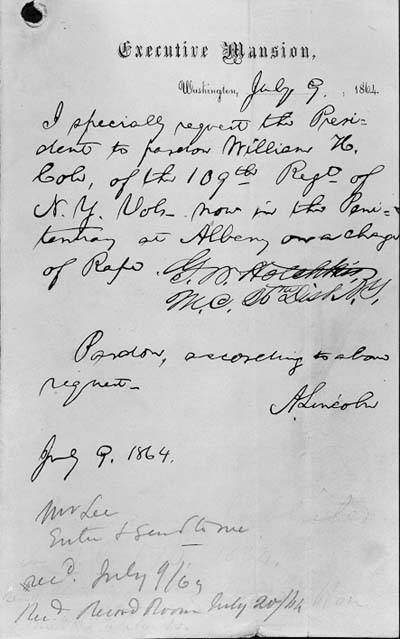 Executive Mansion,
Washington, July 9, 1864.
I specially request the Presi-
dent to pardon William H.
Cole, of the 109th Regt. of
N. Y. Vols. now in the Peni-
tentiary at Albany on a charge
of Rape.
G. W. Hotchkiss
M.C. Dist N.Y.
Pardon, according to above
request.
A. Lincoln
July 9. 1864.
Mr Lee
Enter & send to me
rec'd. July 9/64
Rec'd Record Room July 20/64